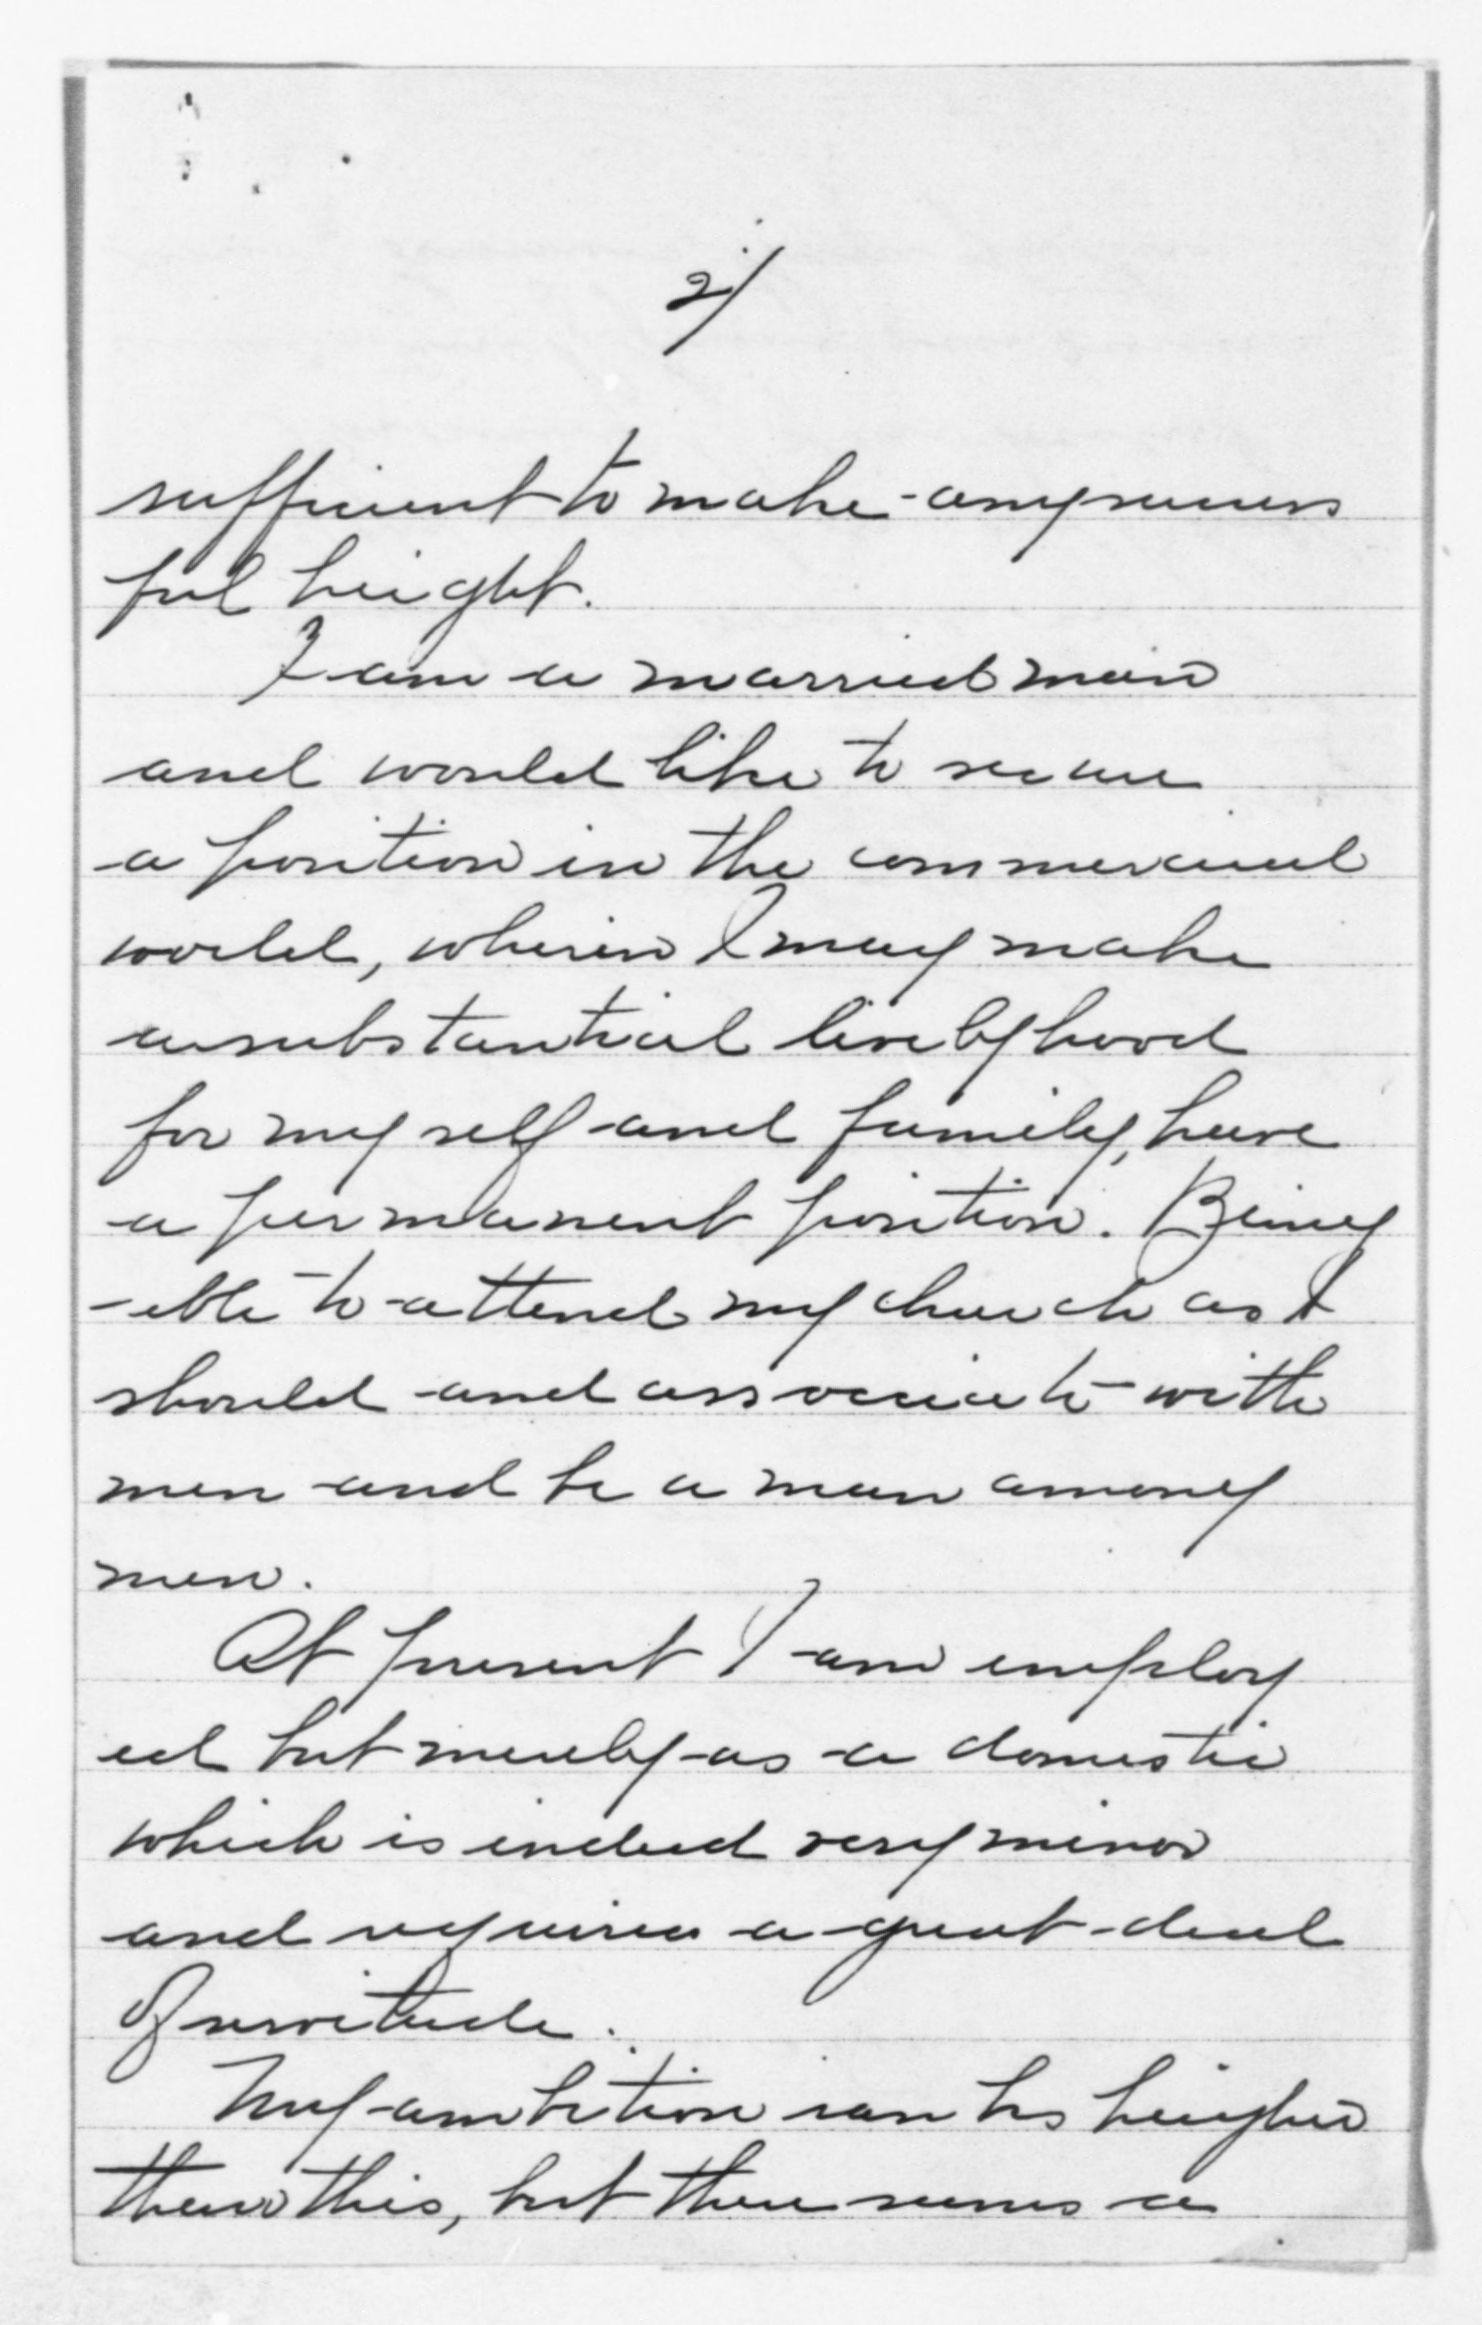 2/
sufficient to make any success
ful height.
I am a married man
and would like to secure
a position in the commercial
world, wherein I may make
a substantial livelyhood
for my self and family, have
a permanent position. Being
able to attend my church as I
should and associate with
men and be a man among
men.
At present I am employ
ed but merely as a domestic
which is indeed very minor
and requires a great deal
of servitude.
My ambition higher
than this, but there seems a